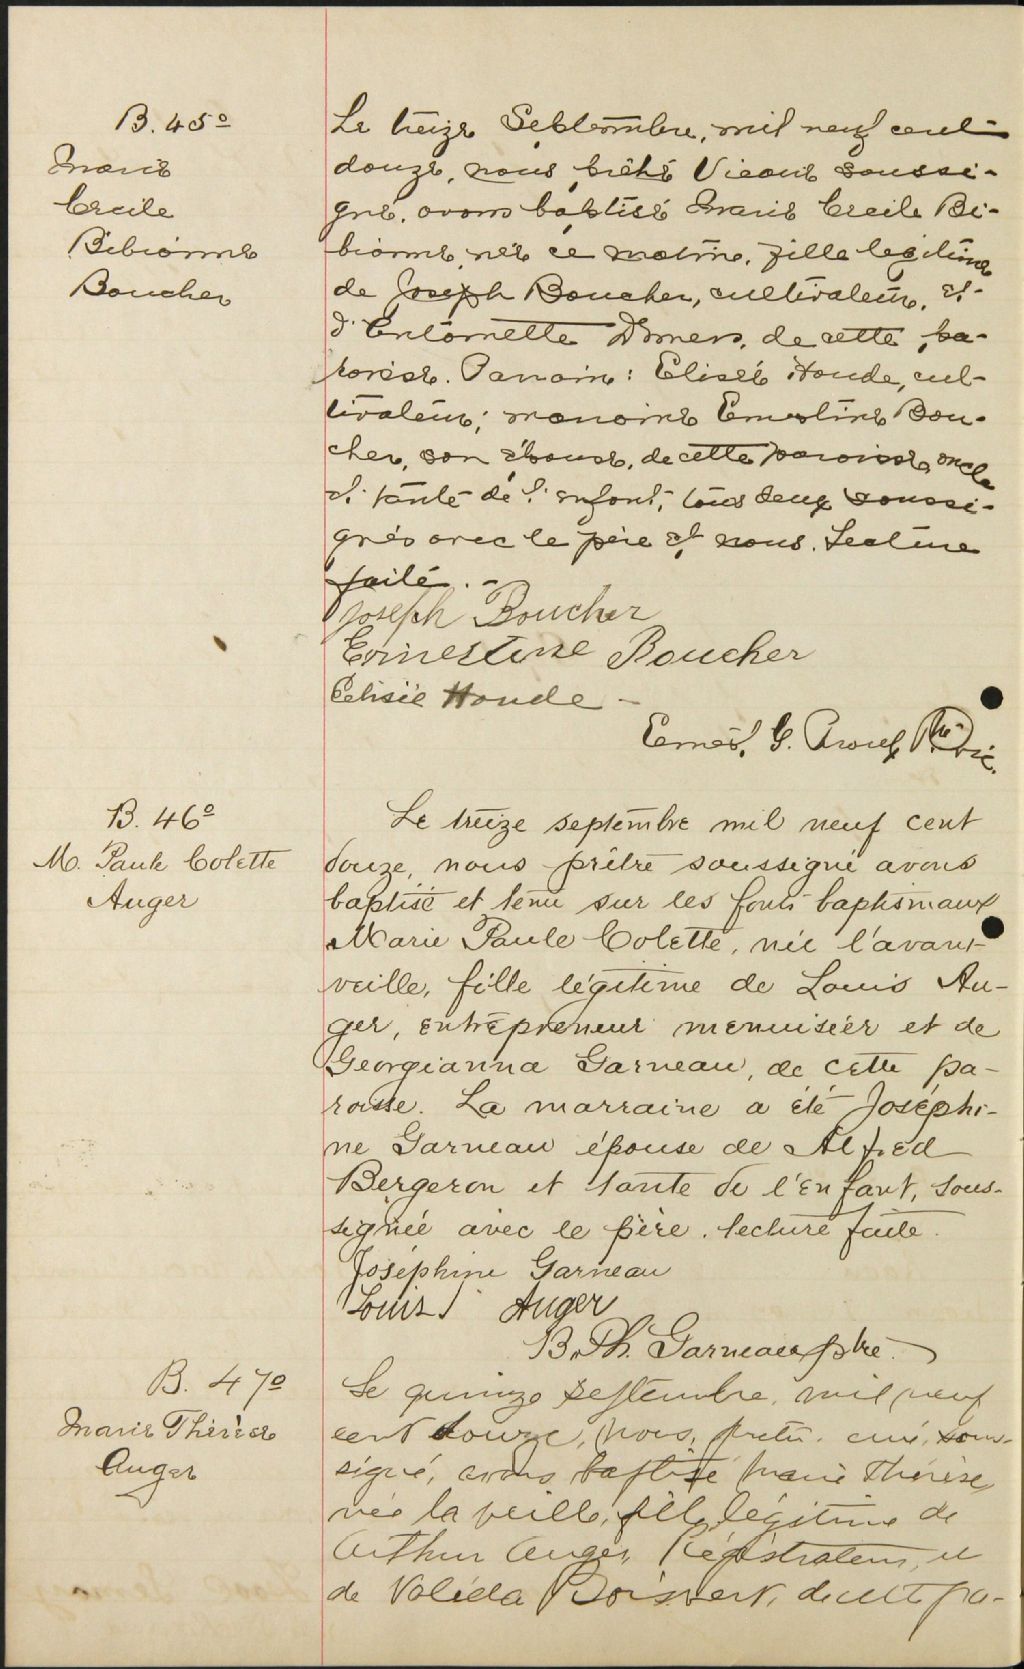 B. 45º
Marie
Cecile
Bibianne
Boucher
Le treize Septembre, mil neuf cent
douze, nous, prêtre Vicaire soussi-
gné, avons baptisé Marie Cecile Bi-
bianne, née ce matin, fille legitime
de Joseph Boucher, cultivateur, et
d'Entoinette Demers, de cette pa-
roisse. Parrain : Elisée Houde, cul-
tivateur ; marraine Ernestine Bou-
cher, son épouse, de cette paroisse, oncle
et tante de l'enfant, tous deux soussi-
gnés avec le père et nous. Lecture
faite. -
Joseph Boucher
Ernestine Boucher
Elisée Houde -
Ernest G. Proulx Ptre Vic.
B. 46º
M. Paule Colette
Auger
Le treize septembre mil neuf cent
douze, nous prêtre soussigné avons
baptisé et tenu sur les fonts baptismaux
Marie Paule Colette, née l'avant-
veille, fille légitime de Louis Au-
ger, entrepreneur menuisier et de
Georgianna Garneau, de cette pa-
roisse. La marraine a été Joséphi-
ne Garneau épouse de Alfred
Bergeron et tante de l'enfant, sous-
signée avec le père. lecture faite.
Joséphine Garneau
Louis Auger
B. Ph. Garneau ptre
B. 47º
Marie Thérèse
Auger
Le quinze septembre, mil neuf
cent douze, nous, prêtre, curé, sous-
signé, avons baptisé Marie Thérèse,
née la veille, fille légitime de
Arthur Auger, Régistrateur, et
de Valéda Boisvert, de cette pa-